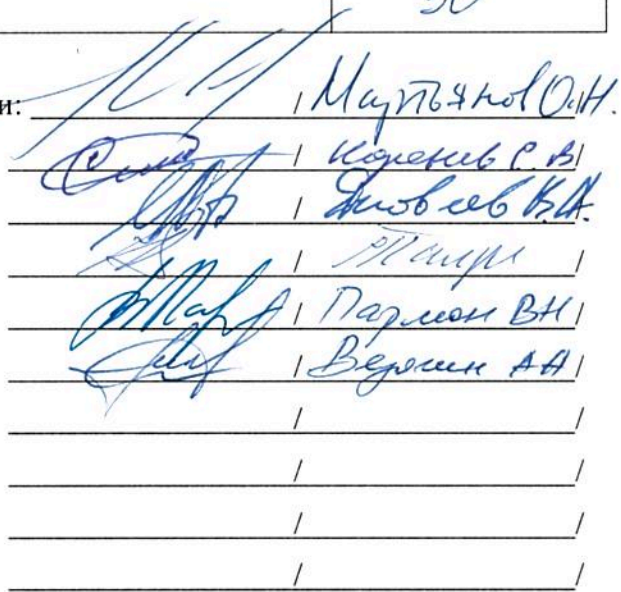 30
и: / Мартьянов О.Н.
/ Коренев С.В/
/ Яковлев В.А.
/ /
/ Пармон ВН/
/ Ведягин АА/
/ /
/ /
/ /
/ /